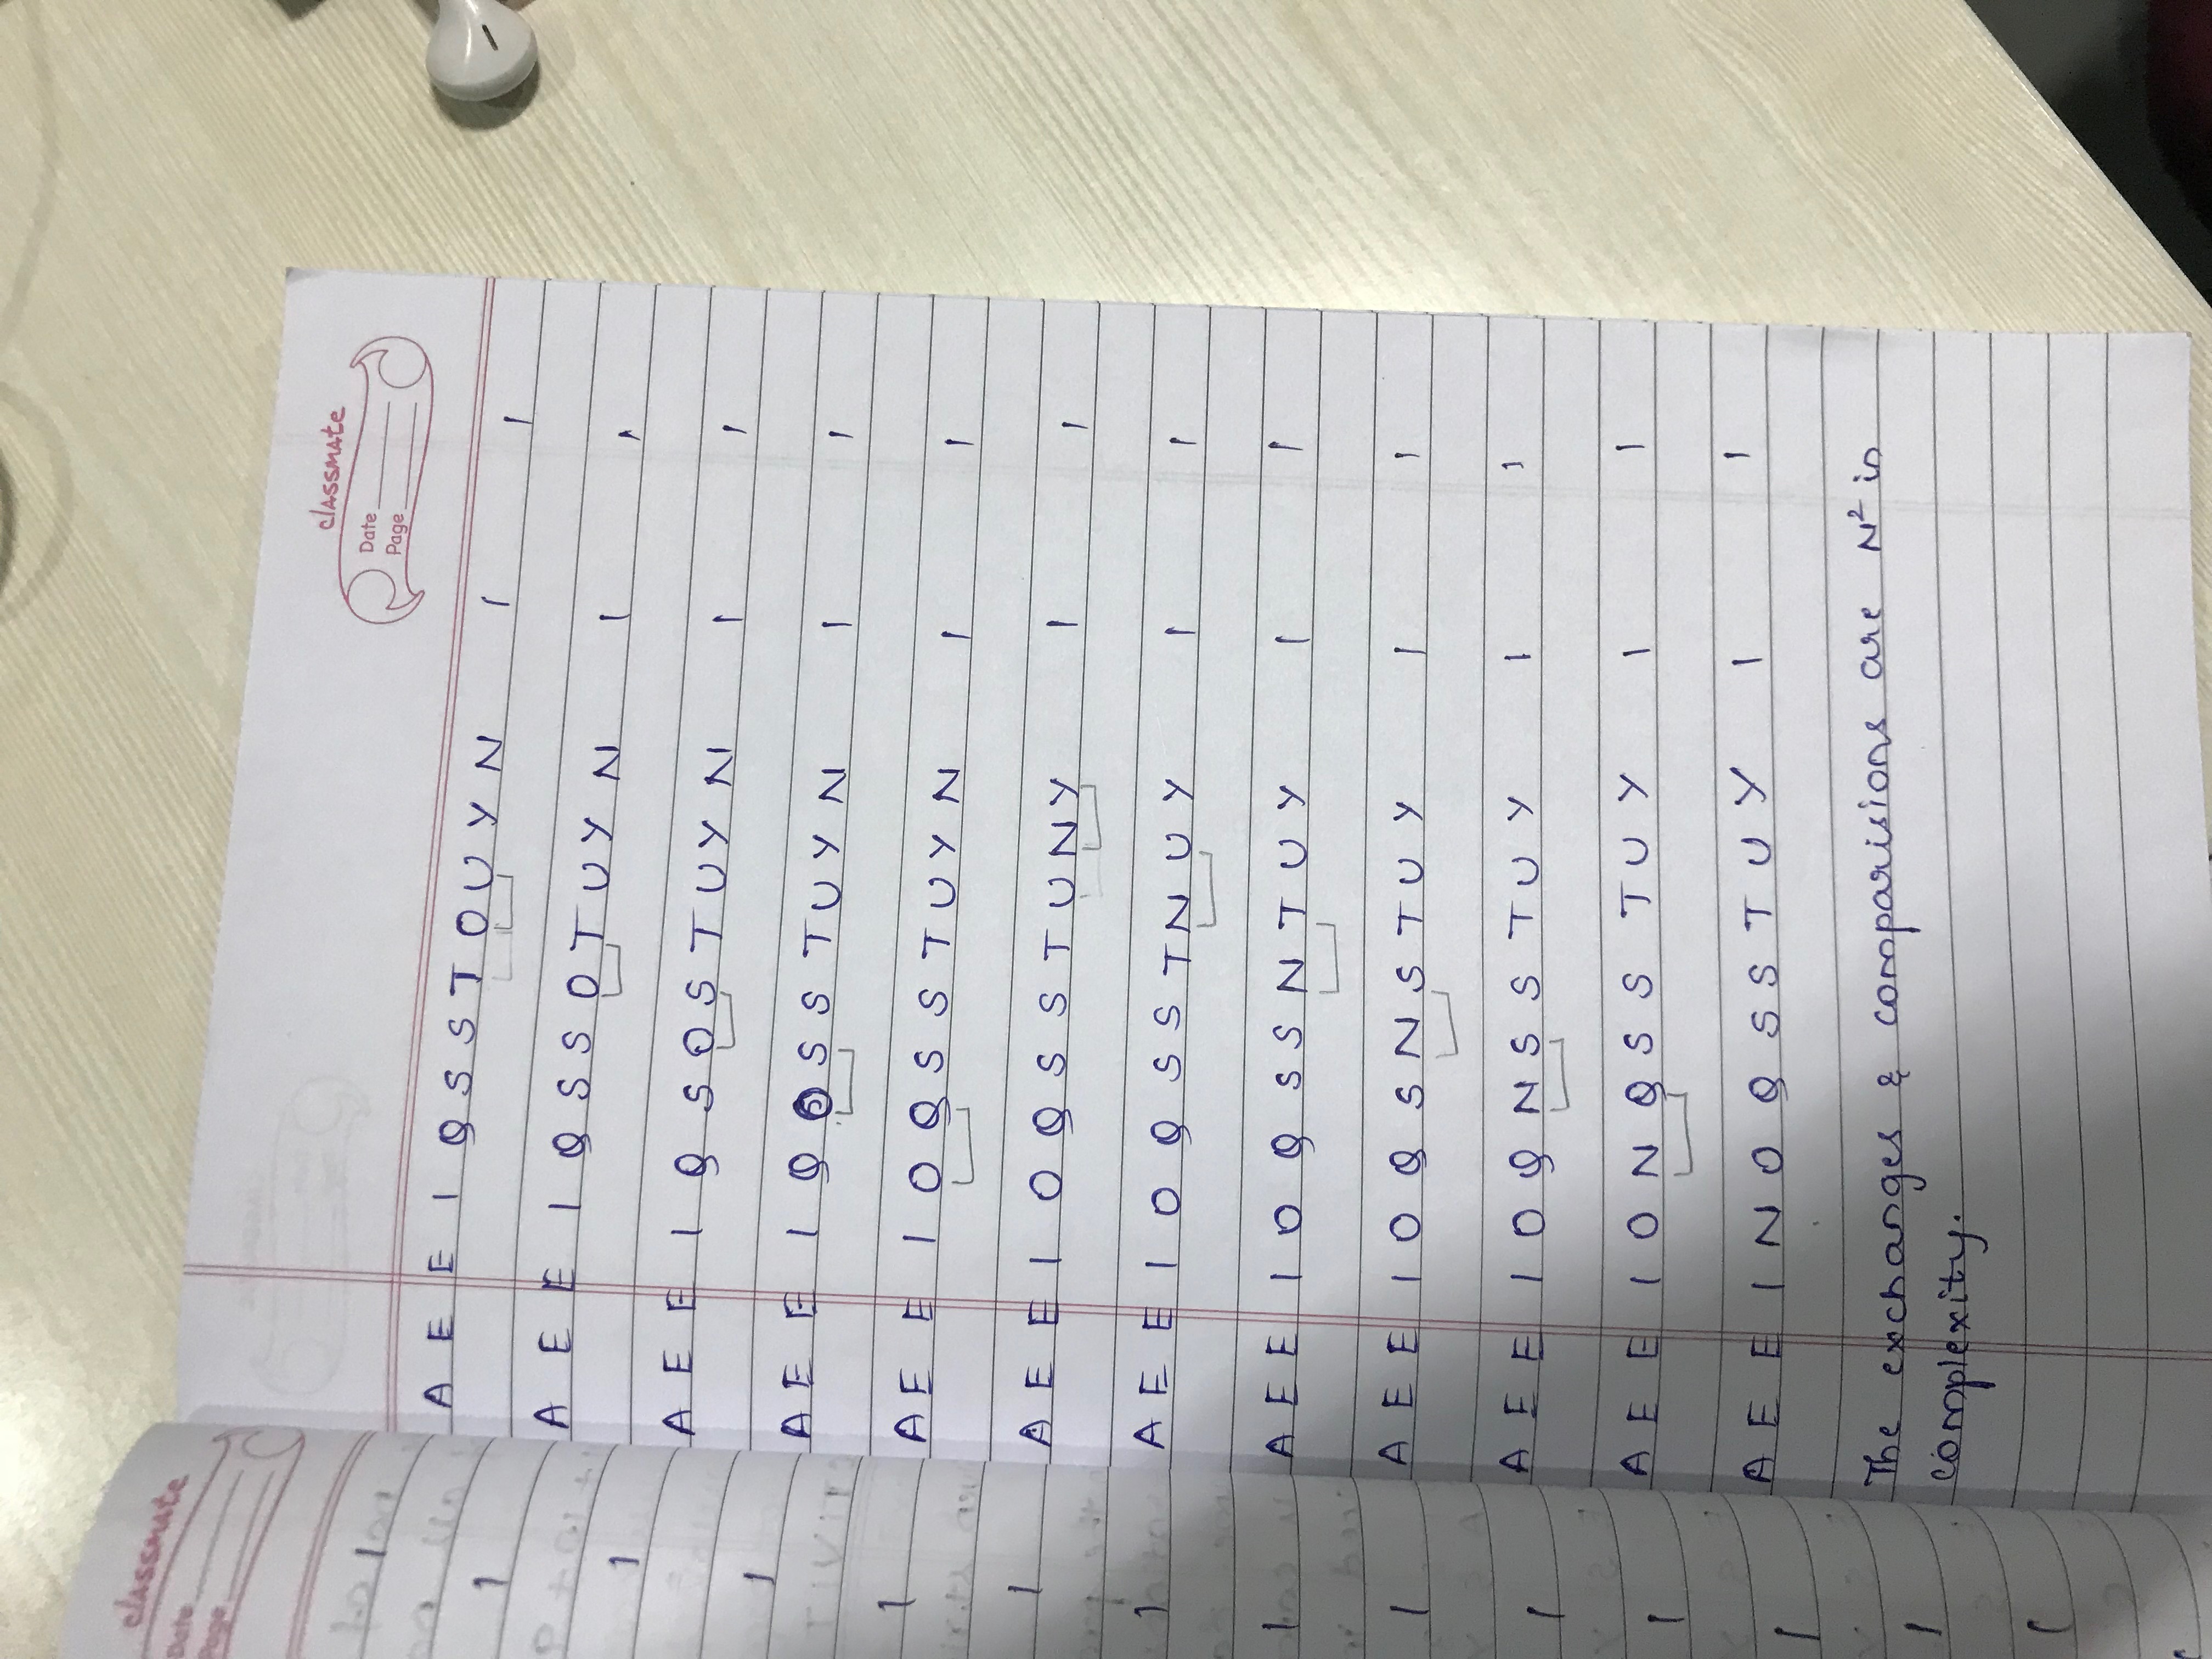 classmate
Date
Page
1
1
1
1
1
1
1
1
1
1
1
1
1
1
classmate
Date
Page
A E E I Q S S T O U Y N 1 1
A E E I Q S S O T U Y N 1 1
A E E I Q S O S T U Y N 1 1
A E E I Q O S S T U Y N 1 1
A E E I O Q S S T U Y N 1 1
A E E I O Q S S T U N Y 1 1
A E E I O Q S S T N U Y 1 1
A E E I O Q S S N T U Y 1 1
A E E I O Q S N S T U Y 1 1
A E E I O Q N S S T U Y 1 1
A E E I O N Q S S T U Y 1 1
A E E I N O Q S S T U Y 1 1
The exchanges & comparisions are N² in
complexity.